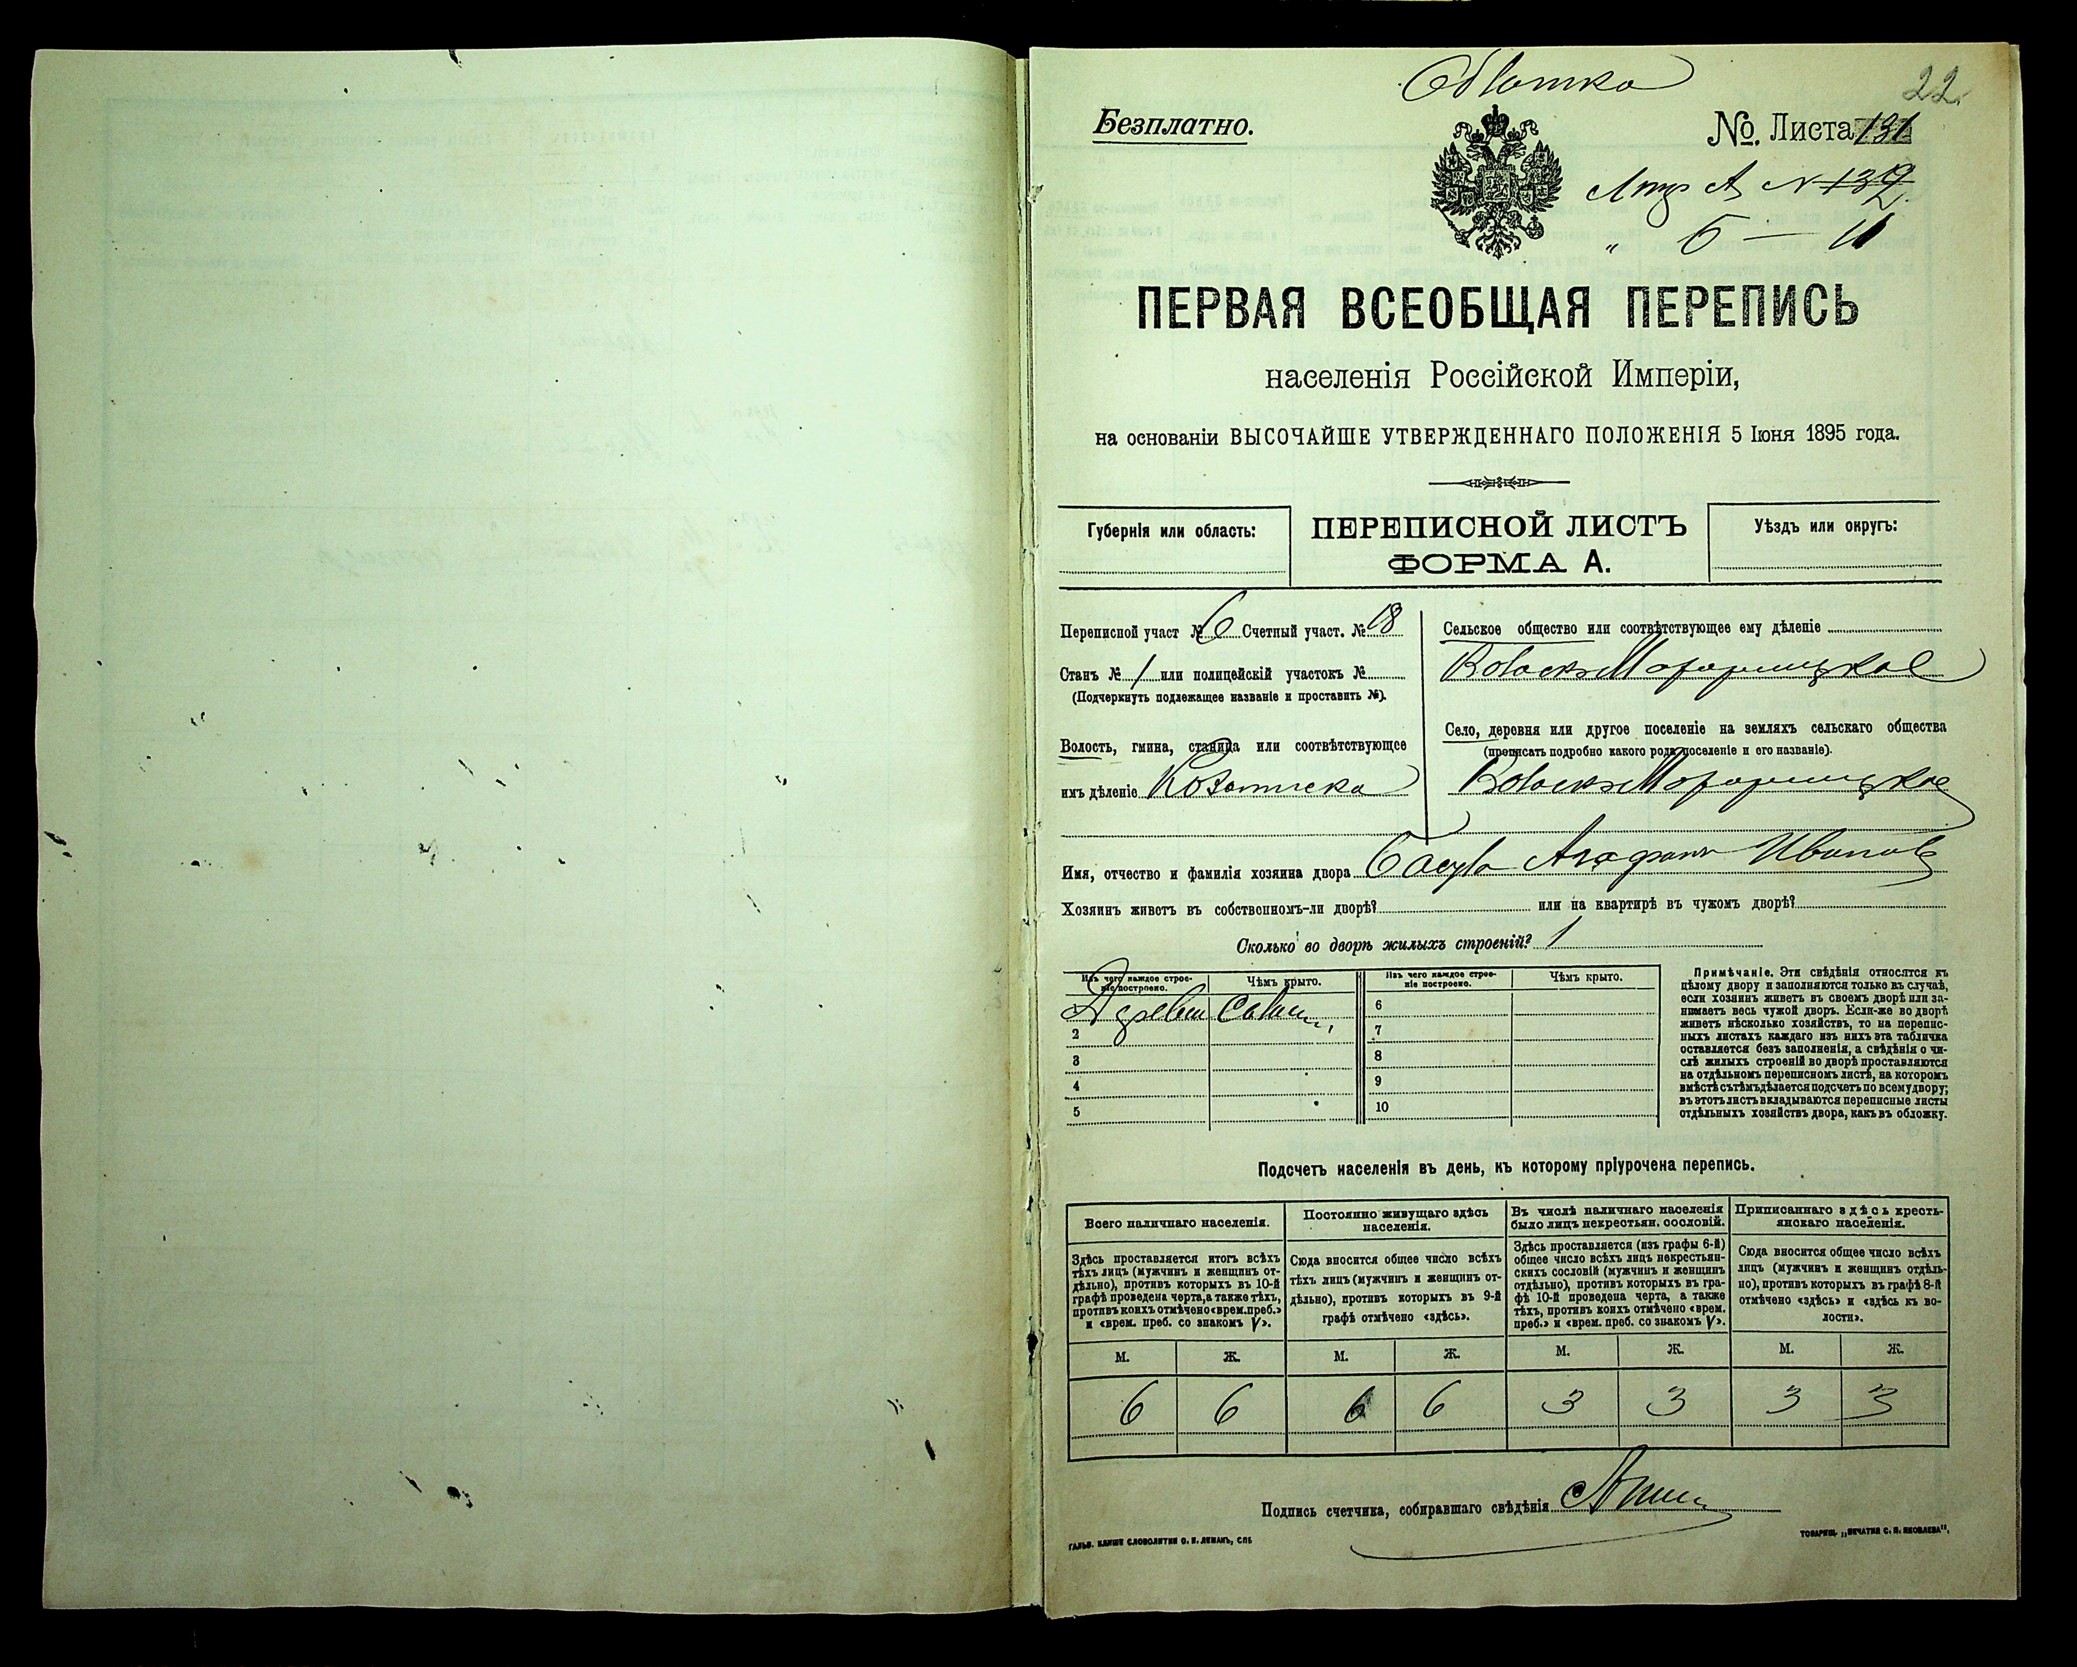 22
Безплатно.
№ Листа 131
Б — 11
ПЕРВАЯ ВСЕОБЩАЯ ПЕРЕПИСЬ
населенія Россійской Имперіи,
на основаніи ВЫСОЧАЙШЕ УТВЕРЖДЕННАГО ПОЛОЖЕНІЯ 5 Іюня 1895 года.
Губернія или область:
ПЕРЕПИСНОЙ ЛИСТЪ
ФОРМА А.
Уѣздъ или округъ:
Переписной участ № 6 Счетный участ. № 18
Станъ № 1 или полицейскій участокъ №
(Подчеркнуть подлежащее названіе и проставить №).
Волость, гмина, станица или соотвѣтствующее
имъ дѣленіе
Сельское общество или соотвѣтствующее ему дѣленіе
Село, деревня или другое поселеніе на земляхъ сельскаго общества
(прописать подробно какого рода поселеніе и его названіе).
Имя, отчество и фамилія хозяина двора Агафонъ Ивановъ
Хозяинъ живетъ въ собственномъ-ли дворѣ? или на квартирѣ въ чужомъ дворѣ?
Сколько во дворѣ жилыхъ строеній? 1
Изъ чего каждое строе-
ніе построено.
Чѣмъ крыто.
Изъ чего каждое строе-
ніе построено.
Чѣмъ крыто.
1
2
3
4
5
6
7
8
9
10
Примѣчаніе. Эти свѣдѣнія относятся къ
цѣлому двору и заполняются только въ случаѣ,
если хозяинъ живетъ въ своемъ дворѣ или за-
нимаетъ весь чужой дворъ. Если-же во дворѣ
живетъ нѣсколько хозяйствъ, то на перепис-
ныхъ листахъ каждаго изъ нихъ эта табличка
оставляется безъ заполненія, а свѣдѣнія о чи-
слѣ жилыхъ строеній во дворѣ проставляются
на отдѣльномъ переписномъ листѣ, на которомъ
вмѣстѣ съ тѣмъ дѣлается подсчетъ по всему двору;
въ этотъ листъ вкладываются переписные листы
отдѣльныхъ хозяйствъ двора, какъ въ обложку.
Подсчетъ населенія въ день, къ которому пріурочена перепись.
Всего наличнаго населенія.
Здѣсь проставляется итогъ всѣхъ
тѣхъ лицъ (мужчинъ и женщинъ от-
дѣльно), противъ которыхъ въ 10-й
графѣ проведена черта, а также тѣхъ,
противъ коихъ отмѣчено «врем. преб.»
и «врем. преб. со знакомъ V».
Постоянно живущаго здѣсь
населенія.
Сюда вносится общее число всѣхъ
тѣхъ лицъ (мужчинъ и женщинъ от-
дѣльно), противъ которыхъ въ 9-й
графѣ отмѣчено «здѣсь».
Въ числѣ наличнаго населенія
было лицъ некрестьян. сословій.
Здѣсь проставляется (изъ графы 6-й)
общее число всѣхъ лицъ некрестьян-
скихъ сословій (мужчинъ и женщинъ
отдѣльно), противъ которыхъ въ гра-
фѣ 10-й проведена черта, а также
тѣхъ, противъ коихъ отмѣчено «врем.
преб.» и «врем. преб. со знакомъ V».
Приписаннаго здѣсь кресть-
янскаго населенія.
Сюда вносится общее число всѣхъ
лицъ (мужчинъ и женщинъ отдѣль-
но), противъ которыхъ въ графѣ 8-й
отмѣчено «здѣсь» и «здѣсь къ во-
лости».
М. Ж. М. Ж. М. Ж. М. Ж.
6 6 6 6 3 3 3 3
Подпись счетчика, собиравшаго свѣдѣнія
ГАЛЬВ. КЛИШЕ СЛОВОЛИТНИ О. И. ЛЕМАНЪ, СПБ
ТОВАРИЩ. „ПЕЧАТНЯ С. П. ЯКОВЛЕВА“.